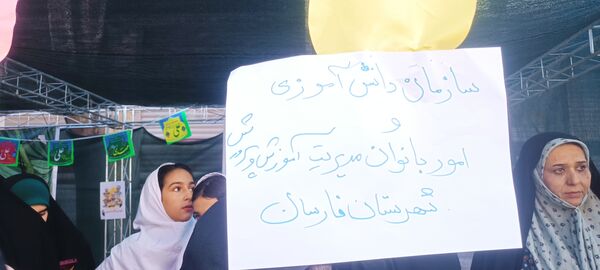 سازمان دانش آموزی
و
امور بانوان مدیریت آموزش و پرورش
شهرستان فارسان
علی